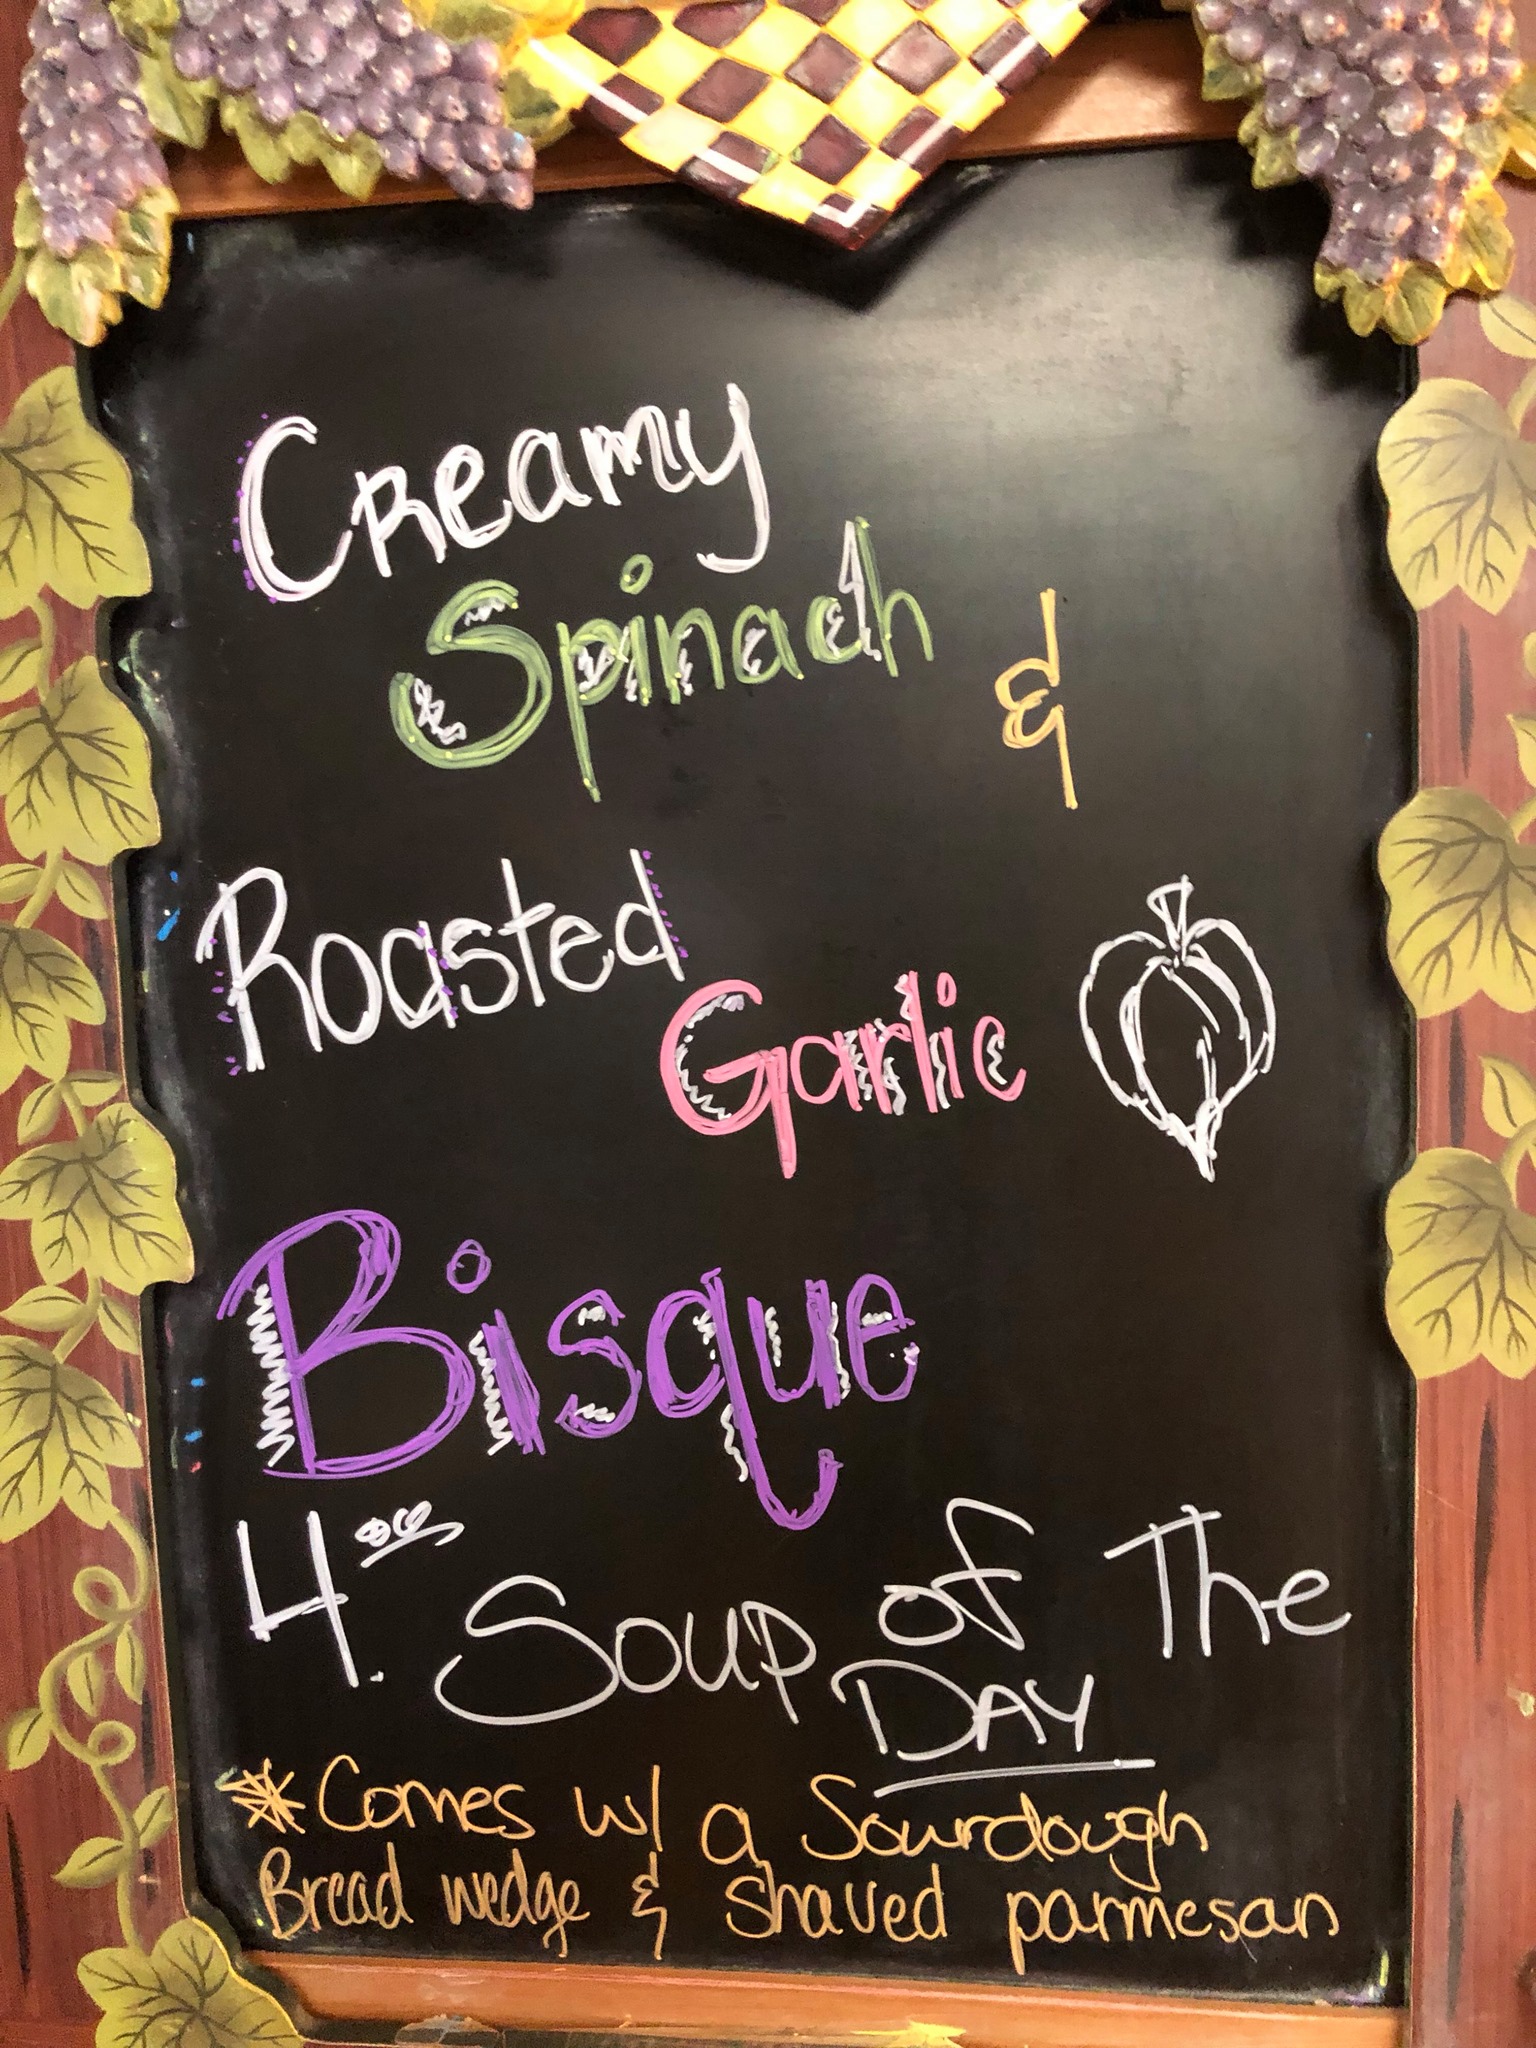 Creamy
Spinach &
Roasted
Garlic
Bisque
4.00 Soup of The
DAY
*Comes w/ a Sourdough
Bread wedge & shaved parmesan